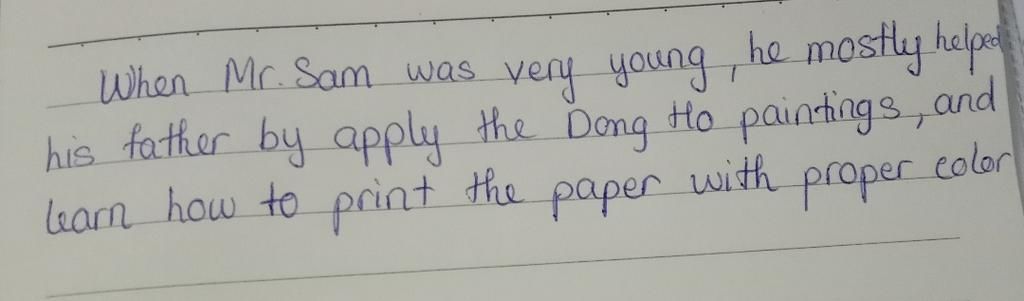 When Mr. Sam was very young, he mostly helped
his father by apply the Dong Ho paintings, and
learn how to print the paper with proper color